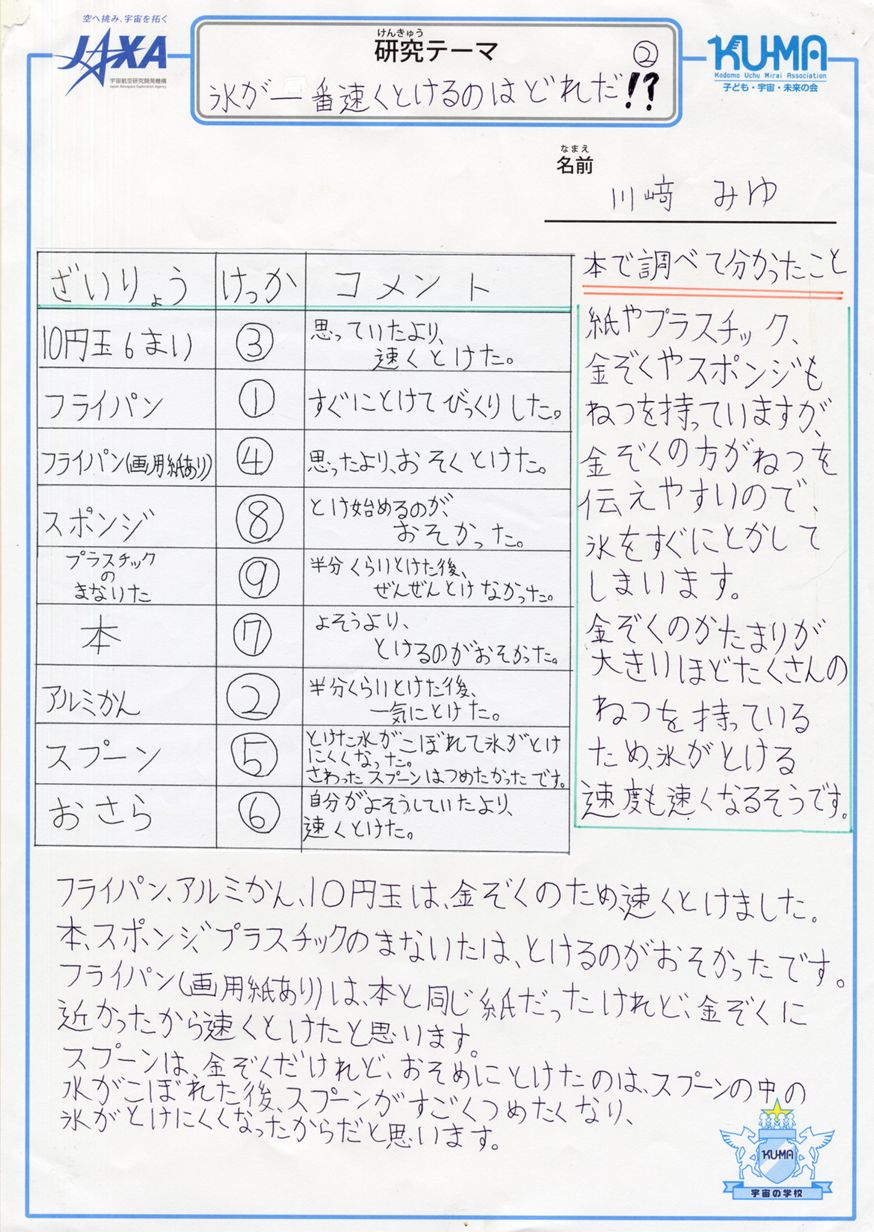 空へ挑み、宇宙を拓く
JAXA
宇宙航空研究開発機構
Japan Aerospace Exploration Agency
けんきゅう
研究テーマ
②
氷が一番速くとけるのはどれだ!?
KU-MA
Kodomo Uchu Mirai Association
子ども・宇宙・未来の会
なまえ
名前
川﨑 みゆ
ざいりょう けっか コメント
10円玉6まい ③ 思っていたより、
速くとけた。
フライパン ① すぐにとけてびっくりした。
フライパン(画用紙あり) ④ 思ったより、おそくとけた。
スポンジ ⑧ とけ始めるのが、
おそかった。
プラスチック
の
まないた ⑨ 半分くらいとけた後、
ぜんぜんとけなかった。
本 ⑦ よそうより、
とけるのがおそかった。
アルミかん ② 半分くらいとけた後、
一気にとけた。
スプーン ⑤ とけた水がこぼれて氷がとけ
にくくなった。
さわったスプーンはつめたかったです。
おさら ⑥ 自分がよそうしていたより、
速くとけた。
本で調べて分かったこと
紙やプラスチック、
金ぞくやスポンジも
ねつを持っていますが、
金ぞくの方がねつを
伝えやすいので、
氷をすぐにとかして
しまいます。
金ぞくのかたまりが
大きいほどたくさんの
ねつを持っている
ため、氷がとける
速度も速くなるそうです。
フライパン、アルミかん、10円玉は、金ぞくのため、速くとけました。
本、スポンジ、プラスチックのまないたは、とけるのがおそかったです。
フライパン(画用紙あり)は、本と同じ紙だったけれど、金ぞくに
近かったから速くとけたと思います。
スプーンは、金ぞくだけれど、おそめにとけたのは、スプーンの中の
水がこぼれた後、スプーンがすごくつめたくなり、
氷がとけにくくなったからだと思います。
KU-MA
宇宙の学校